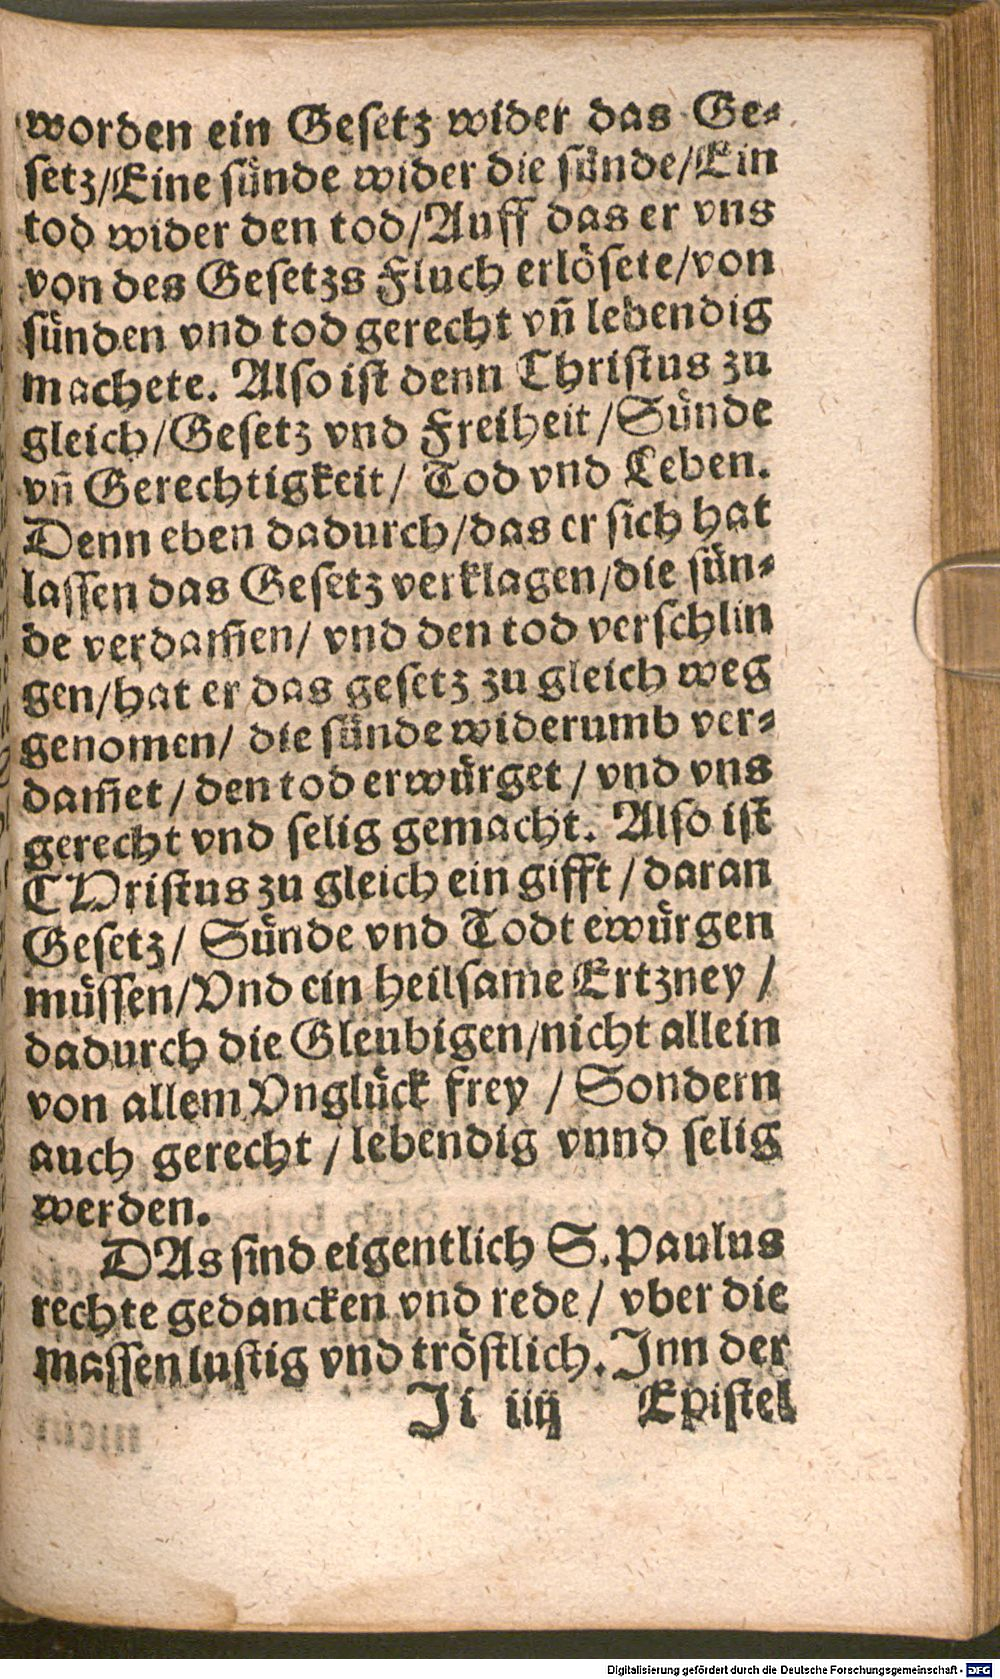 worden ein Gesetz wider das Ge⸗
setz/Eine sünde wider die sünde/Ein
tod wider den tod/Auff das er vns
von des Gesetzs Fluch erlösete/von
sünden vnd tod gerecht vñ lebendig
machete. Also ist denn Christus zu
gleich/Gesetz vnd Freiheit/Sünde
vñ Gerechtigkeit/ Tod vnd Leben.
Denn eben dadurch/das er sich hat
lassen das Gesetz verklagen/die sün⸗
de verdam̄en/ vnd den tod verschlin
gen/hat er das gesetz zu gleich weg
genomen/ die sünde widerumb ver⸗
dam̄et/ den tod erwürget/ vnd vns
gerecht vnd selig gemacht. Also ist
CHristus zu gleich ein gifft/ daran
Gesetz/ Sünde vnd Todt ewürgen
müssen/Vnd ein heilsame Ertzney/
dadurch die Gleubigen/nicht allein
von allem Vnglück frey / Sondern
auch gerecht / lebendig vnnd selig
werden.
DAs sind eigentlich S. Paulus
rechte gedancken vnd rede/ vber die
massen lustig vnd tröstlich. Inn der
Ii iiij Epistel
Digitalisierung gefördert durch die Deutsche Forschungsgemeinschaft - DFG